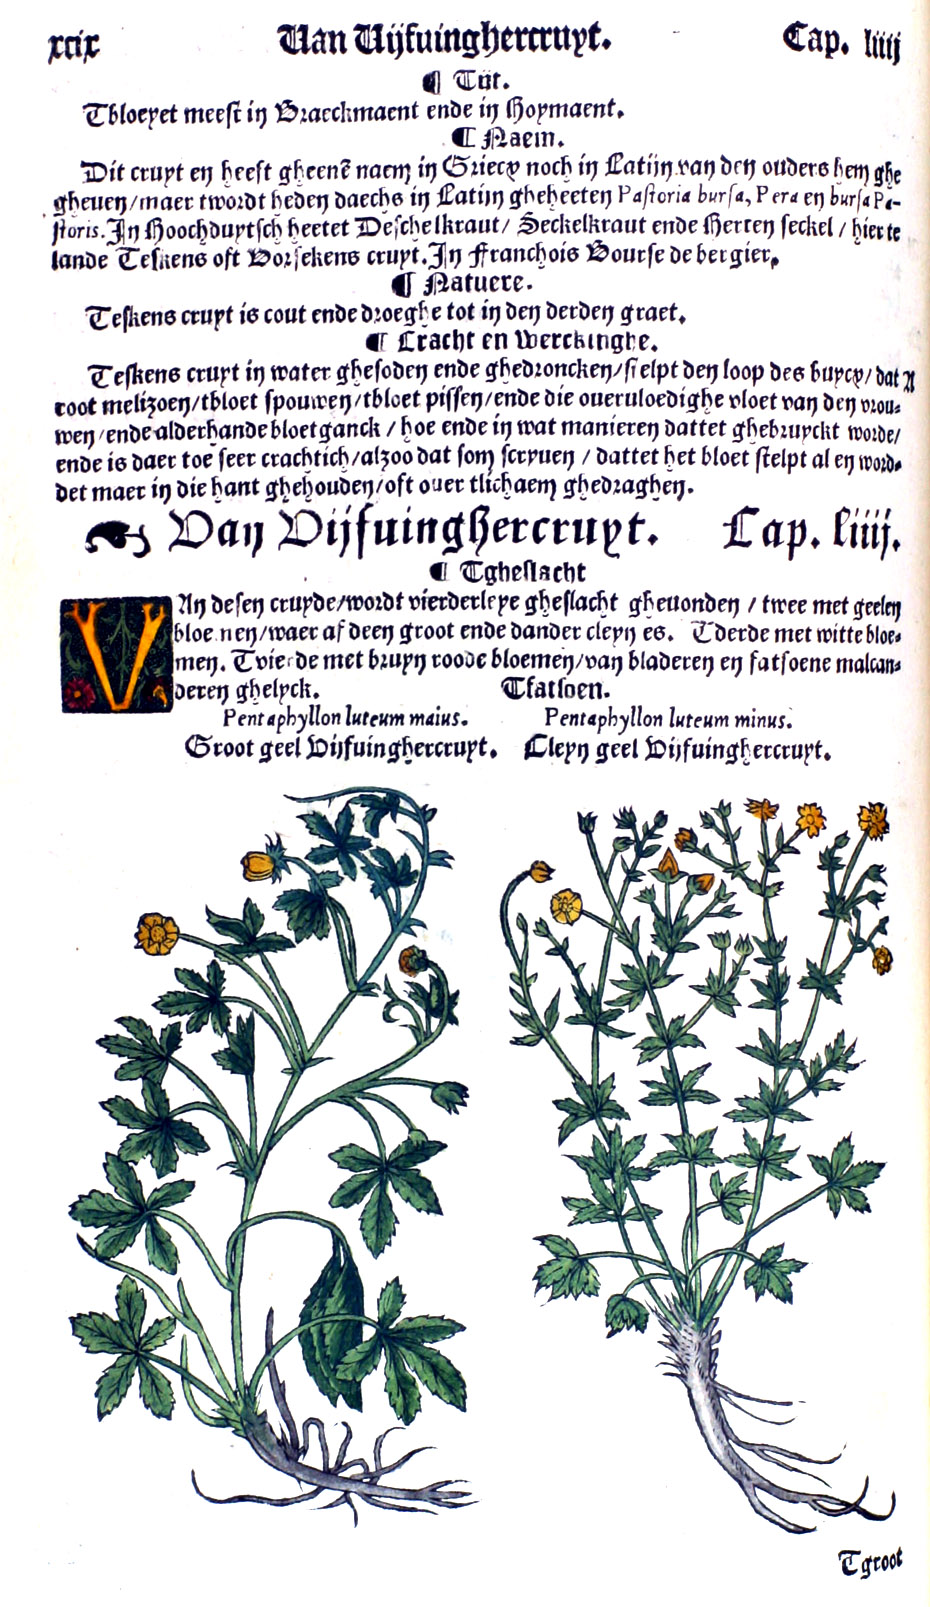 xcix Van Vijfuinghercruyt. Cap. liiij
¶ Tijt.
Tbloeyet meest in Braeckmaent ende in Hoymaent.
¶ Naem.
Dit cruyt en heeft gheenē naem in Griecx noch in Latijn van den ouders hem ghe
gheuen/maer twordt heden daechs in Latijn gheheeten Pastoria bursa, Pera en bursa Pa-
storis. In Hoochduytsch heetet Deschelkraut/ Seckelkraut ende Herten seckel / hier te
lande Teskens oft Borsekens cruyt. In Franchois Bourse de bergier,
¶ Natuere.
Teskens cruyt is cout ende droeghe tot in den derden graet.
¶ Cracht en Werckinghe.
Teskens cruyt in water ghesoden ende ghedroncken/stelpt den loop des buycx/ dat A
root melizoen/tbloet spouwen/tbloet pissen/ende die oueruloedighe vloet van den vrou-
wen/ende alderhande bloetganck / hoe ende in wat manieren dattet ghebruyckt worde/
ende is daer toe seer crachtich/alzoo dat som scryuen / dattet het bloet stelpt al en word-
det maer in die hant ghehouden/oft ouer tlichaem ghedraghen.
Van Vijfuinghercruyt. Cap. liiij.
¶ Tgheslacht
VAn desen cruyde/wordt vierderleye gheslacht gheuonden / twee met geelen
bloemen/waer af deen groot ende dander cleyn es. Tderde met witte bloe-
men. Tvierde met bruyn roode bloemen/van bladeren en fatsoene malcan-
deren ghelyck. Tfatsoen.
Pentaphyllon luteum maius. Pentaphyllon luteum minus.
Groot geel Vijfuinghercruyt. Cleyn geel Vijfuinghercruyt.
Tgroot